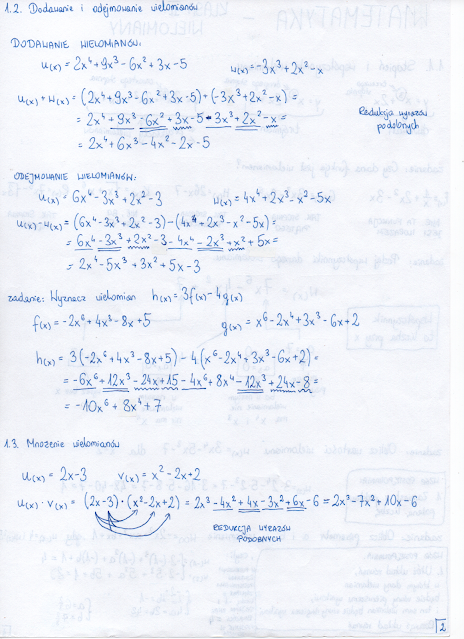 1.2. Dodawanie i odejmowanie wielomianów
DODAWANIE WIELOMIANÓW:
u(x) = 2x⁴+9x³-6x²+3x-5 w(x)=-3x³+2x²-x
u(x)+w(x) = (2x⁴+9x³-6x²+3x-5)+(-3x³+2x²-x) =
= 2x⁴+9x³-6x²+3x-5-3x³+2x²-x =
Redukcja wyrazów podobnych
= 2x⁴+6x³-4x²-2x-5
ODEJMOWANIE WIELOMIANÓW:
u(x) = 6x⁴-3x³+2x²-3 w(x) = 4x⁴+2x³-x²-5x
u(x)-w(x) = (6x⁴-3x³+2x²-3)-(4x⁴+2x³-x²-5x)=
= 6x⁴-3x³+2x²-3-4x⁴-2x³+x²+5x=
= 2x⁴-5x³+3x²+5x-3
zadanie: Wyznacz wielomian h(x)=3f(x)-4g(x)
f(x) = -2x⁶+4x³-8x+5 g(x) = x⁶-2x⁴+3x³-6x+2
h(x) = 3(-2x⁶+4x³-8x+5)-4(x⁶-2x⁴+3x³-6x+2)=
= -6x⁶+12x³-24x+15-4x⁶+8x⁴-12x³+24x-8=
= -10x⁶+8x⁴+7
1.3. Mnożenie wielomianów
u(x) = 2x-3 v(x) = x²-2x+2
u(x)·v(x) = (2x-3)·(x²-2x+2) = 2x³-4x²+4x-3x²+6x-6 = 2x³-7x²+10x-6
REDUKCJA WYRAZÓW
PODOBNYCH
2